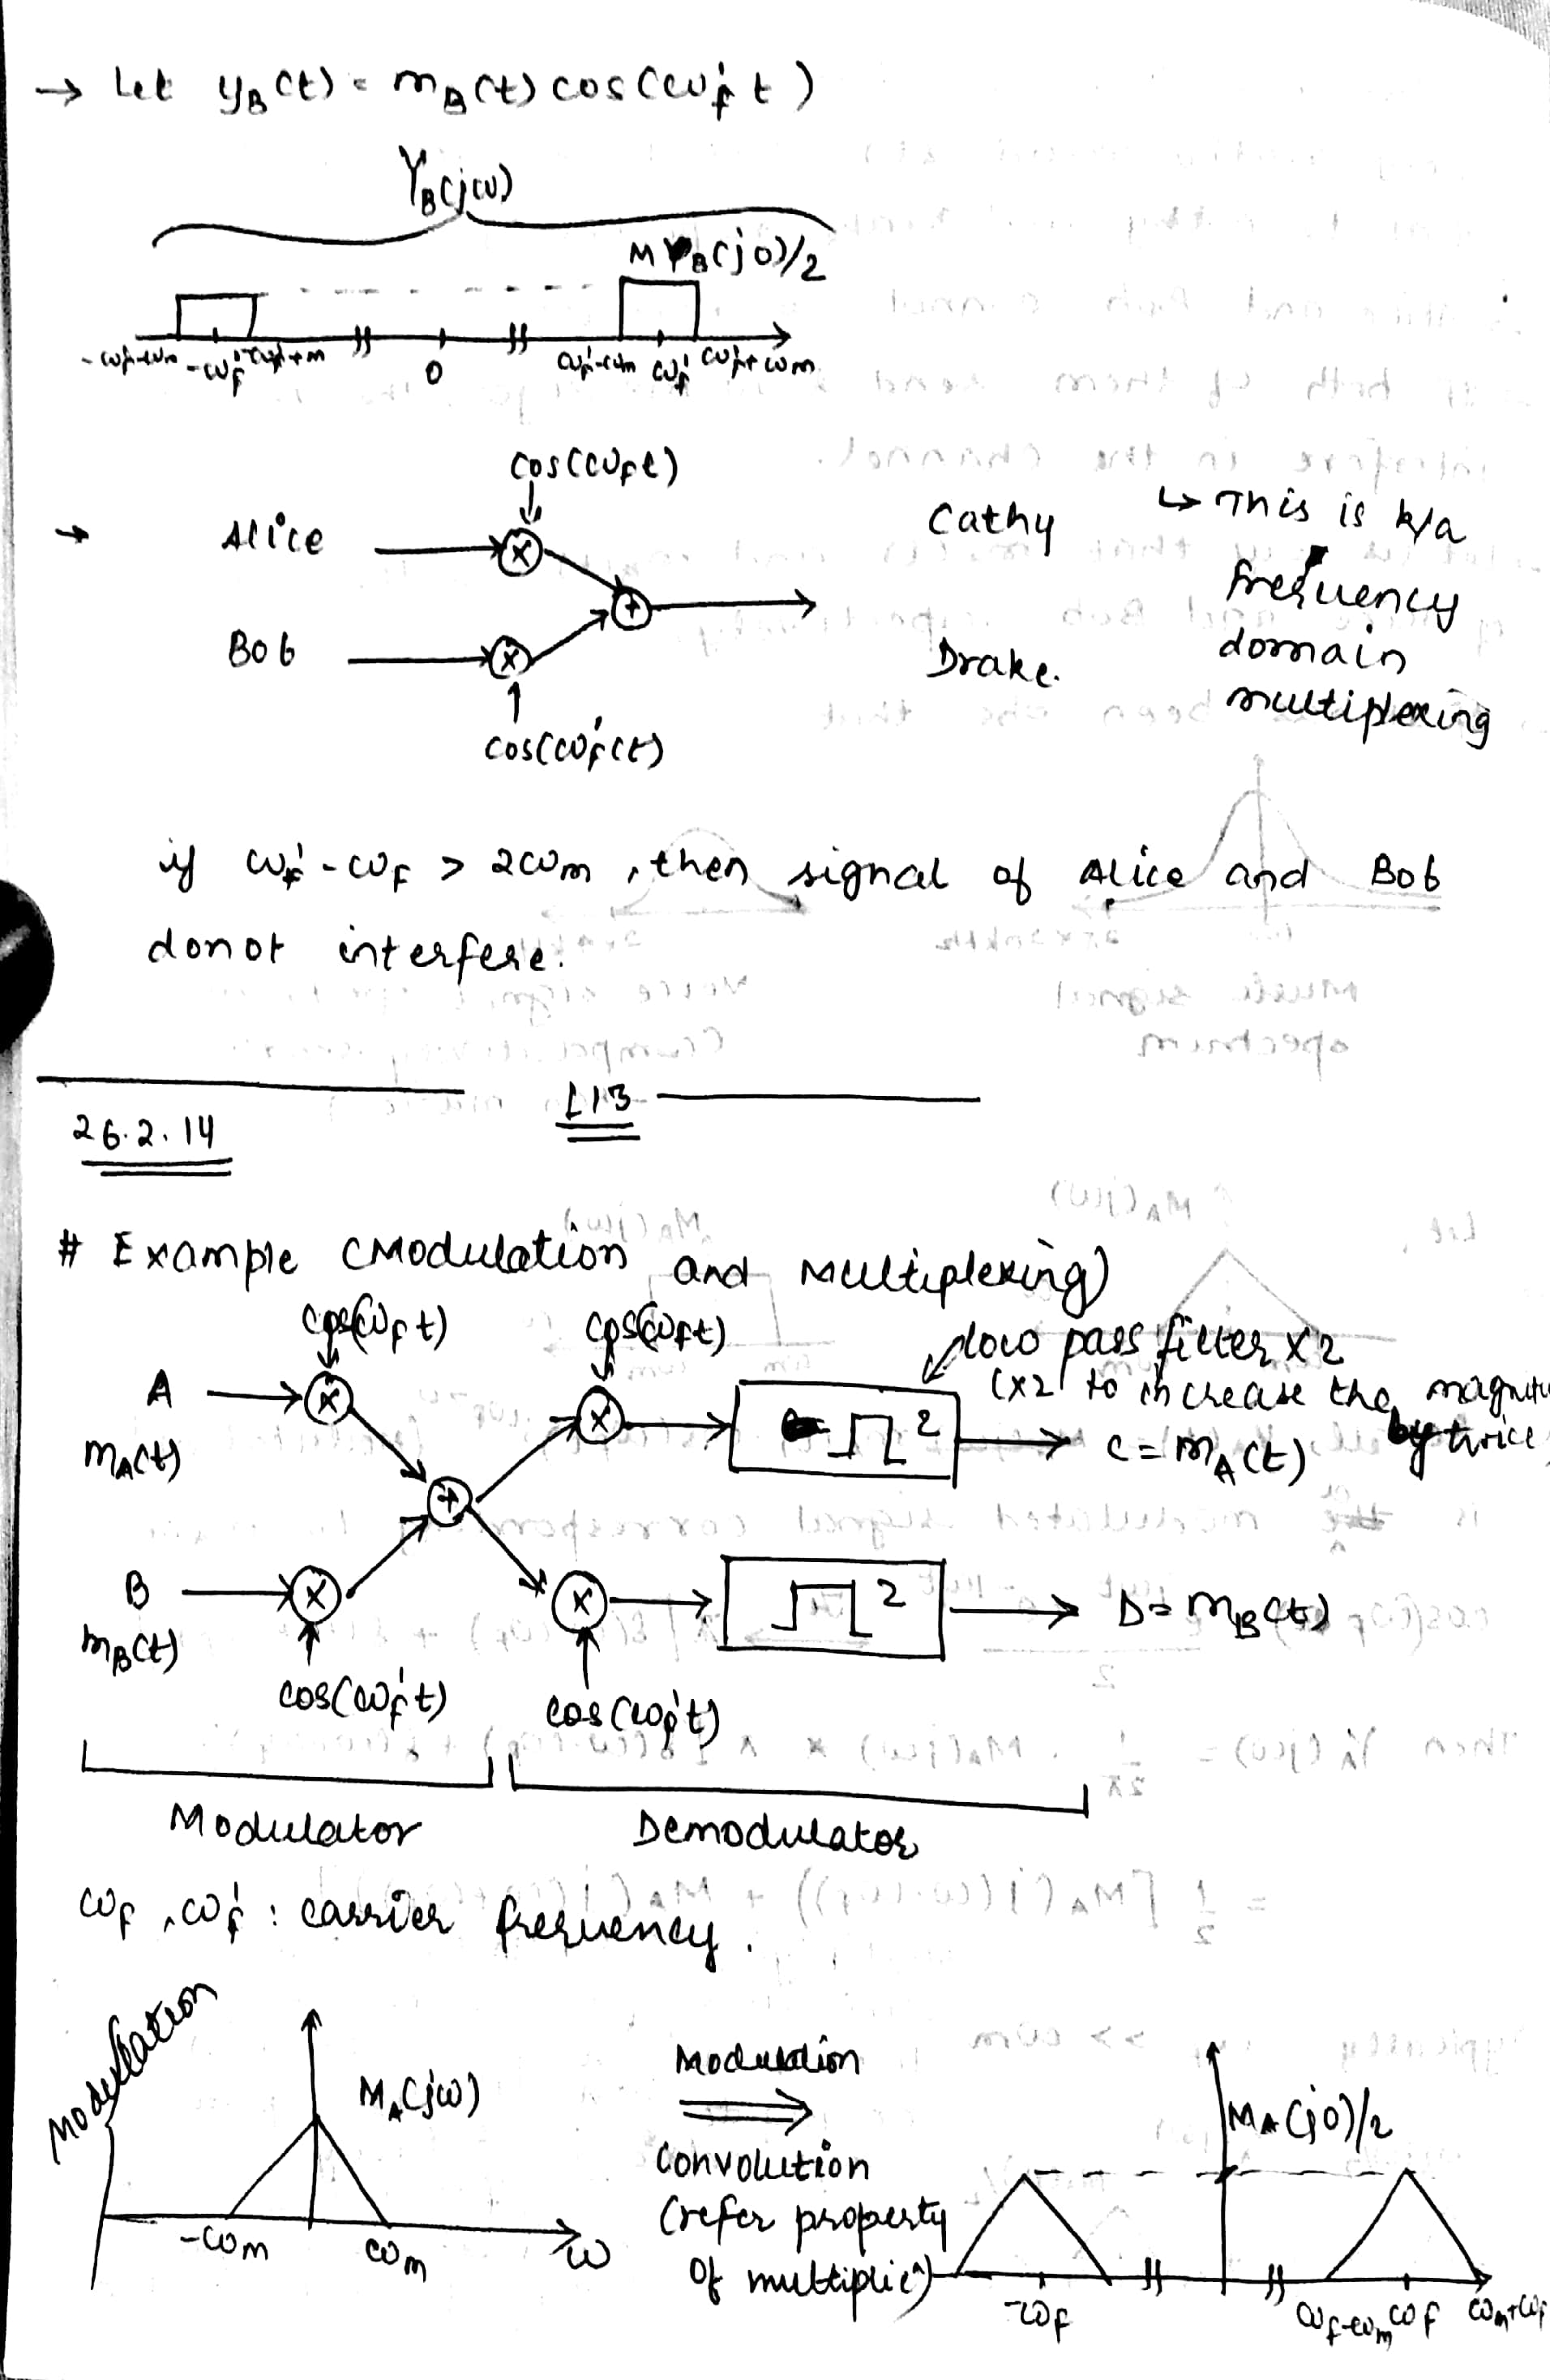 → Let y_B(t) = m_B(t) cos(ω_f' t)
Y_B(jω)
M_B(j0)/2
-ω_f'-ω_m -ω_f' -ω_f'+m 0 ω_f'-ω_m ω_f' ω_f'+ω_m
cos(ω_f t)
→ Alice × Cathy ↳ This is k/a
+ frequency
Bob × Drake. domain
multiplexing
cos(ω_f'(t)
if ω_f' - ω_f > 2ω_m, then signal of Alice and Bob
donot interfere.
L13
26.2.14
# Example (Modulation and Multiplexing)
cos(ω_f t) cos(ω_f t) low pass filter x2
(x2 to increase the magnitu
by twice
A × × 2 C = m_A(t)
m_A(t)
+
B × × 2 D = m_B(t)
m_B(t)
cos(ω_f' t) cos(ω_f' t)
Modulator Demodulator
ω_f, ω_f' : carrier frequency.
Modulation
M_A(jω)
-ω_m ω_m ω
Modulation
⇒
Convolution
(refer property
of multiplicⁿ)
M_A(j0)/2
-ω_f ω_f-ω_m ω_f ω_m+ω_f